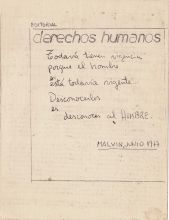 EDITORIAL
derechos humanos
Todavía tienen vigencia
porque el hombre
está todavía vigente.
Desconocerlos
es
desconocer al HOMBRE.
MALVIN, 1977